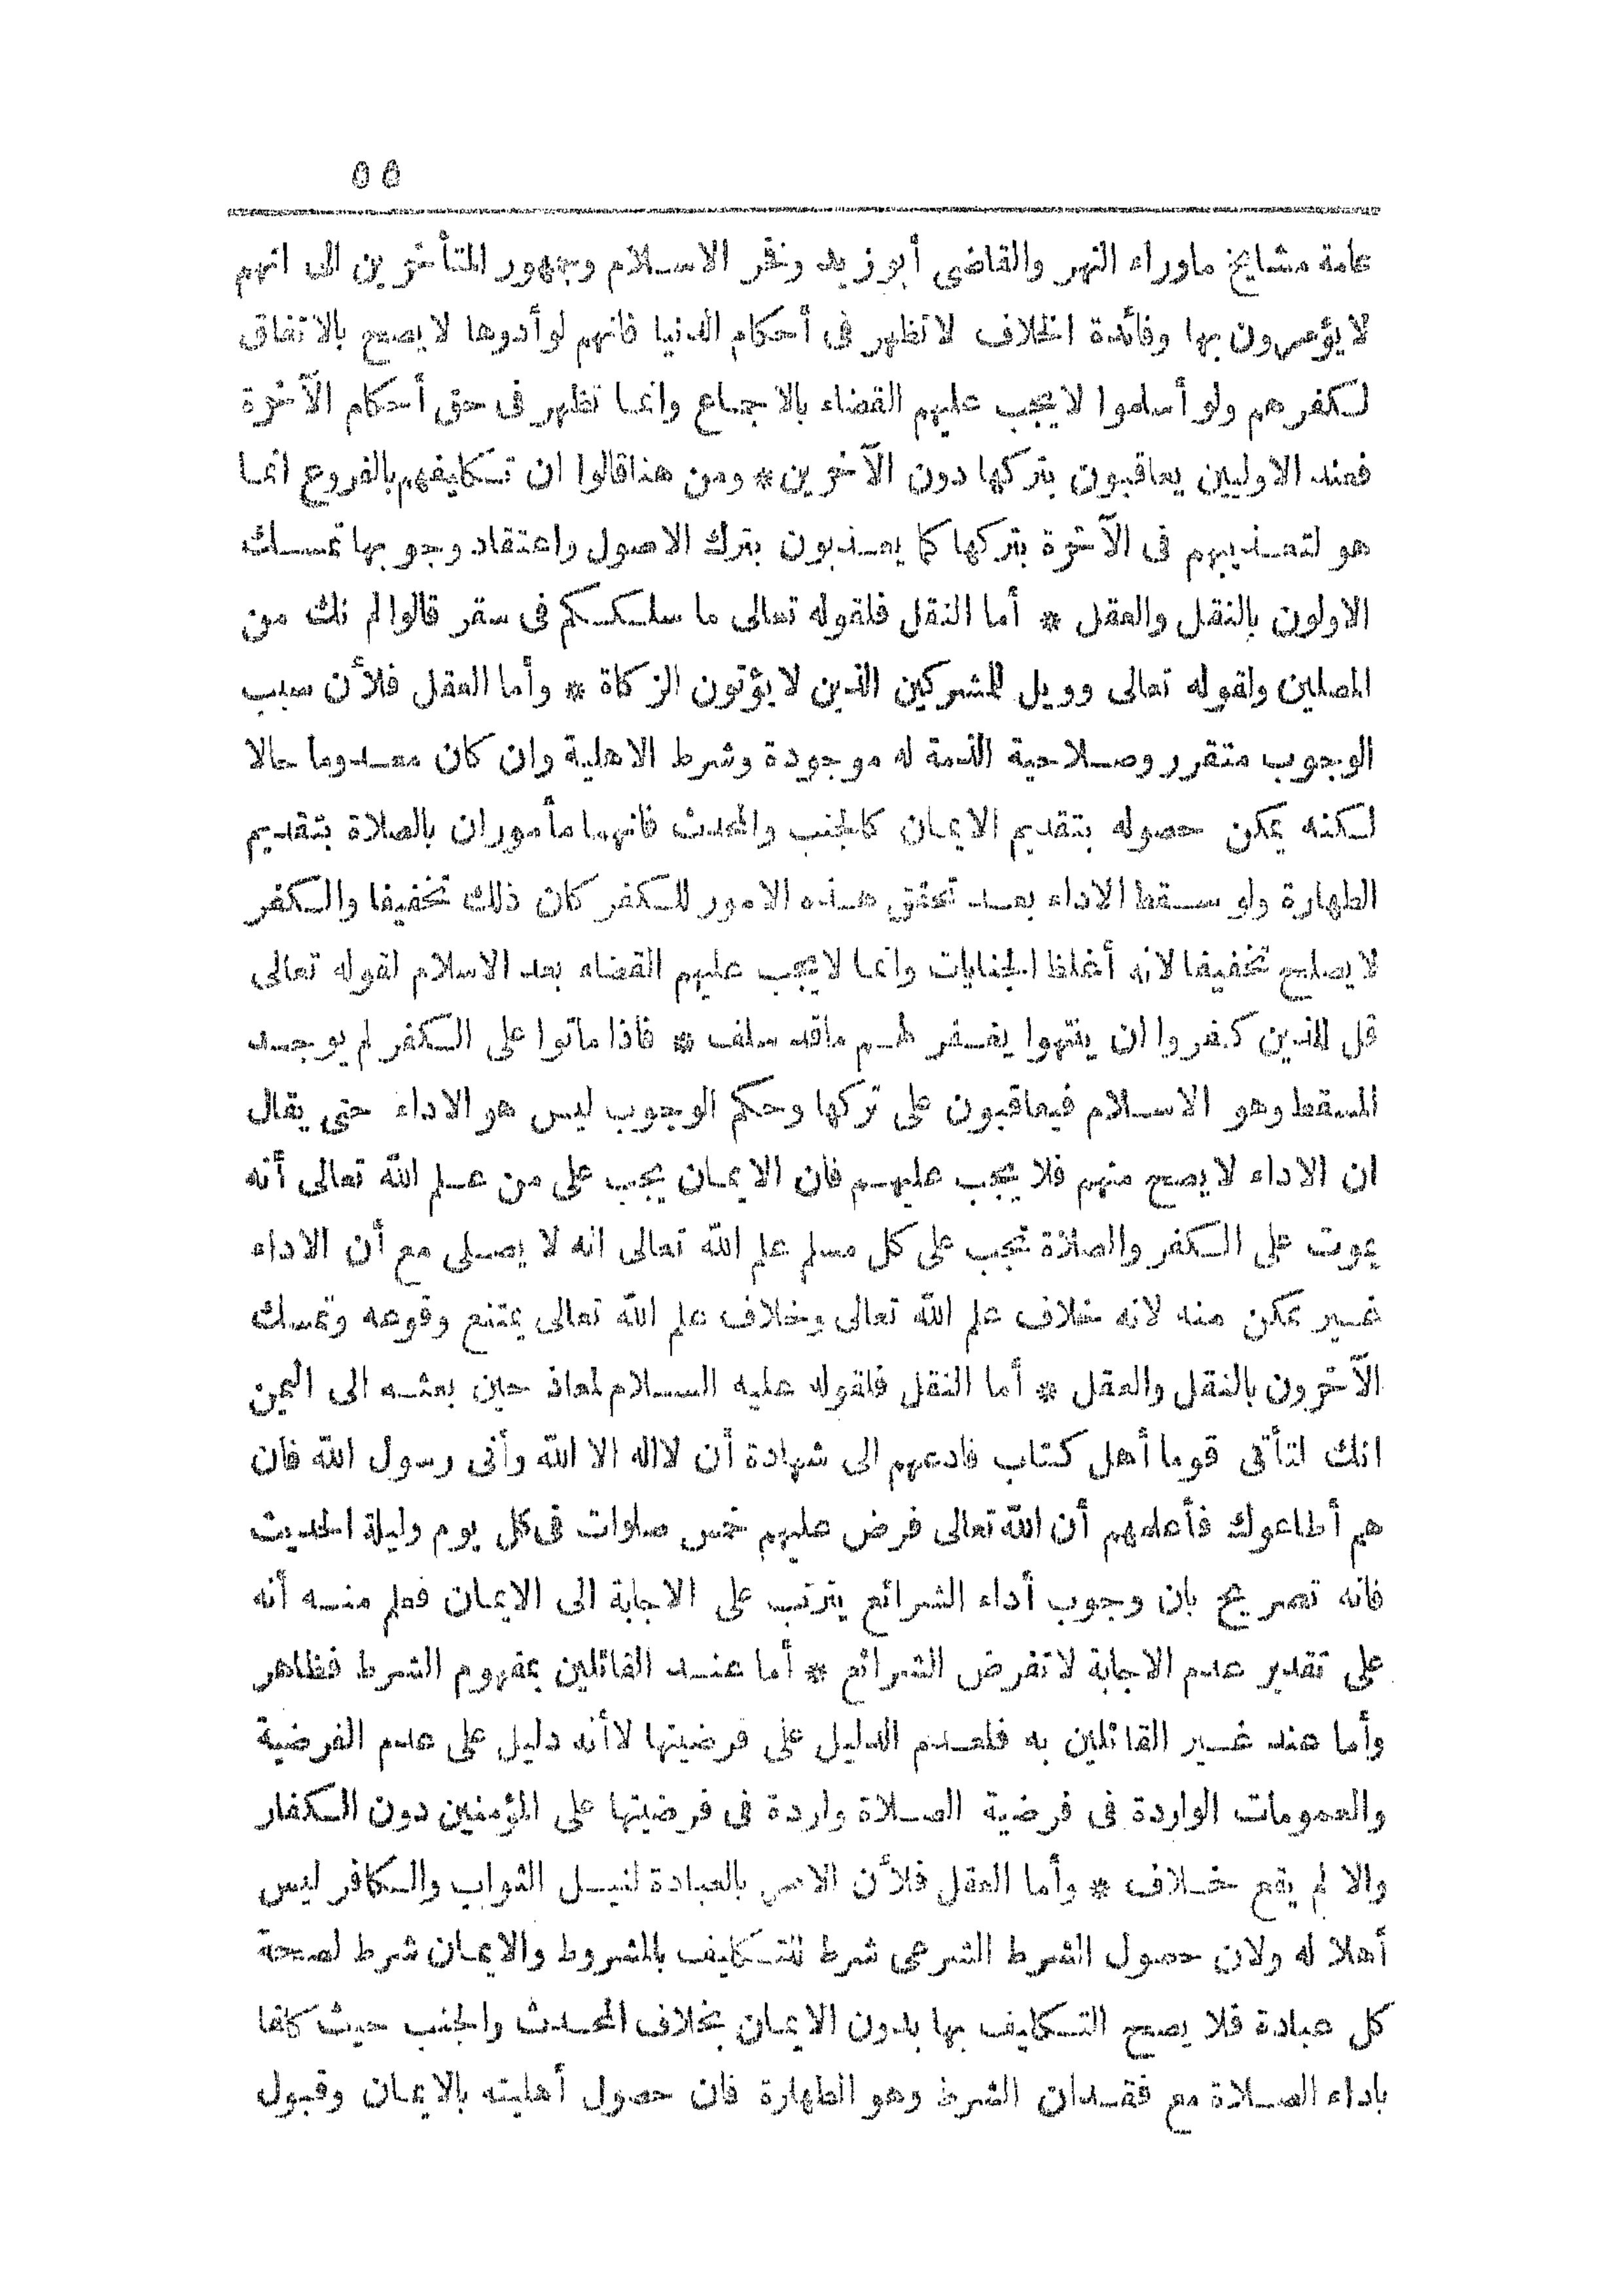 ٥٥
عامة مشايخ ماوراء النهر والقاضى أبو زيد وفخر الاسلام وجمهور المتأخرين الى انهم
لا يؤمرون بها وفائدة الخلاف لا تظهر فى أحكام الدنيا فانهم لو أدوها لا يصح بالاتفاق
لكفرهم ولو أسلموا لا يجب عليهم القضاء بالاجماع وانما تظهر فى حق أحكام الآخرة
فعند الاولين يعاقبون بتركها دون الآخرين * ومن هذا قالوا ان تكليفهم بالفروع انما
هو لتعذيبهم فى الآخرة بتركها كما يعذبون بترك الاصول واعتقاد وجوبها تمسك
الاولون بالنقل والعقل * أما النقل فلقوله تعالى ما سلككم فى سقر قالوا لم نك من
المصلين ولقوله تعالى وويل للمشركين الذين لا يؤتون الزكاة * وأما العقل فلأن سبب
الوجوب متقرر وصلاحية الذمة له موجودة وشرط الاهلية وان كان معدوما حالا
لكنه يمكن حصوله بتقديم الايمان كالجنب والمحدث فانهما مأموران بالصلاة بتقديم
الطهارة ولو سقط الاداء بعد تحقق هذه الامور للكفر كان ذلك تخفيفا والكفر
لا يصلح تخفيفا لانه أغلظ الجنايات وانما لا يجب عليهم القضاء بعد الاسلام لقوله تعالى
قل للذين كفروا ان ينتهوا يغفر لهم ماقد سلف * فاذا ماتوا على الكفر لم يوجد
المسقط وهو الاسلام فيعاقبون على تركها وحكم الوجوب ليس هو الاداء حتى يقال
ان الاداء لا يصح منهم فلا يجب عليهم فان الايمان يجب على من علم الله تعالى أنه
يموت على الكفر والصلاة تجب على كل مسلم علم الله تعالى انه لا يصلى مع أن الاداء
غير ممكن منه لانه خلاف علم الله تعالى وخلاف علم الله تعالى يمتنع وقوعه وتمسك
الآخرون بالنقل والعقل * أما النقل فلقوله عليه السلام لمعاذ حين بعثه الى اليمن
انك لتأتى قوما أهل كتاب فادعهم الى شهادة أن لااله الا الله وأنى رسول الله فان
هم أطاعوك فأعلمهم أن الله تعالى فرض عليهم خمس صلوات فى كل يوم وليلة الحديث
فانه تصريح بان وجوب أداء الشرائع يترتب على الاجابة الى الايمان فعلم منه أنه
على تقدير عدم الاجابة لا تفرض الشرائع * أما عند القائلين بمفهوم الشرط فظاهر
وأما عند غير القائلين به فلعدم الدليل على فرضيتها لا أنه دليل على عدم الفرضية
والعمومات الواردة فى فرضية الصلاة واردة فى فرضيتها على المؤمنين دون الكفار
والا لم يقع خلاف * وأما العقل فلأن الامر بالعبادة لنيل الثواب والكافر ليس
أهلا له ولان حصول الشرط الشرعى شرط للتكليف بالمشروط والايمان شرط لصحة
كل عبادة فلا يصح التكليف بها بدون الايمان بخلاف المحدث والجنب حيث كلفا
باداء الصلاة مع فقدان الشرط وهو الطهارة فان حصول أهليته بالايمان وقبول